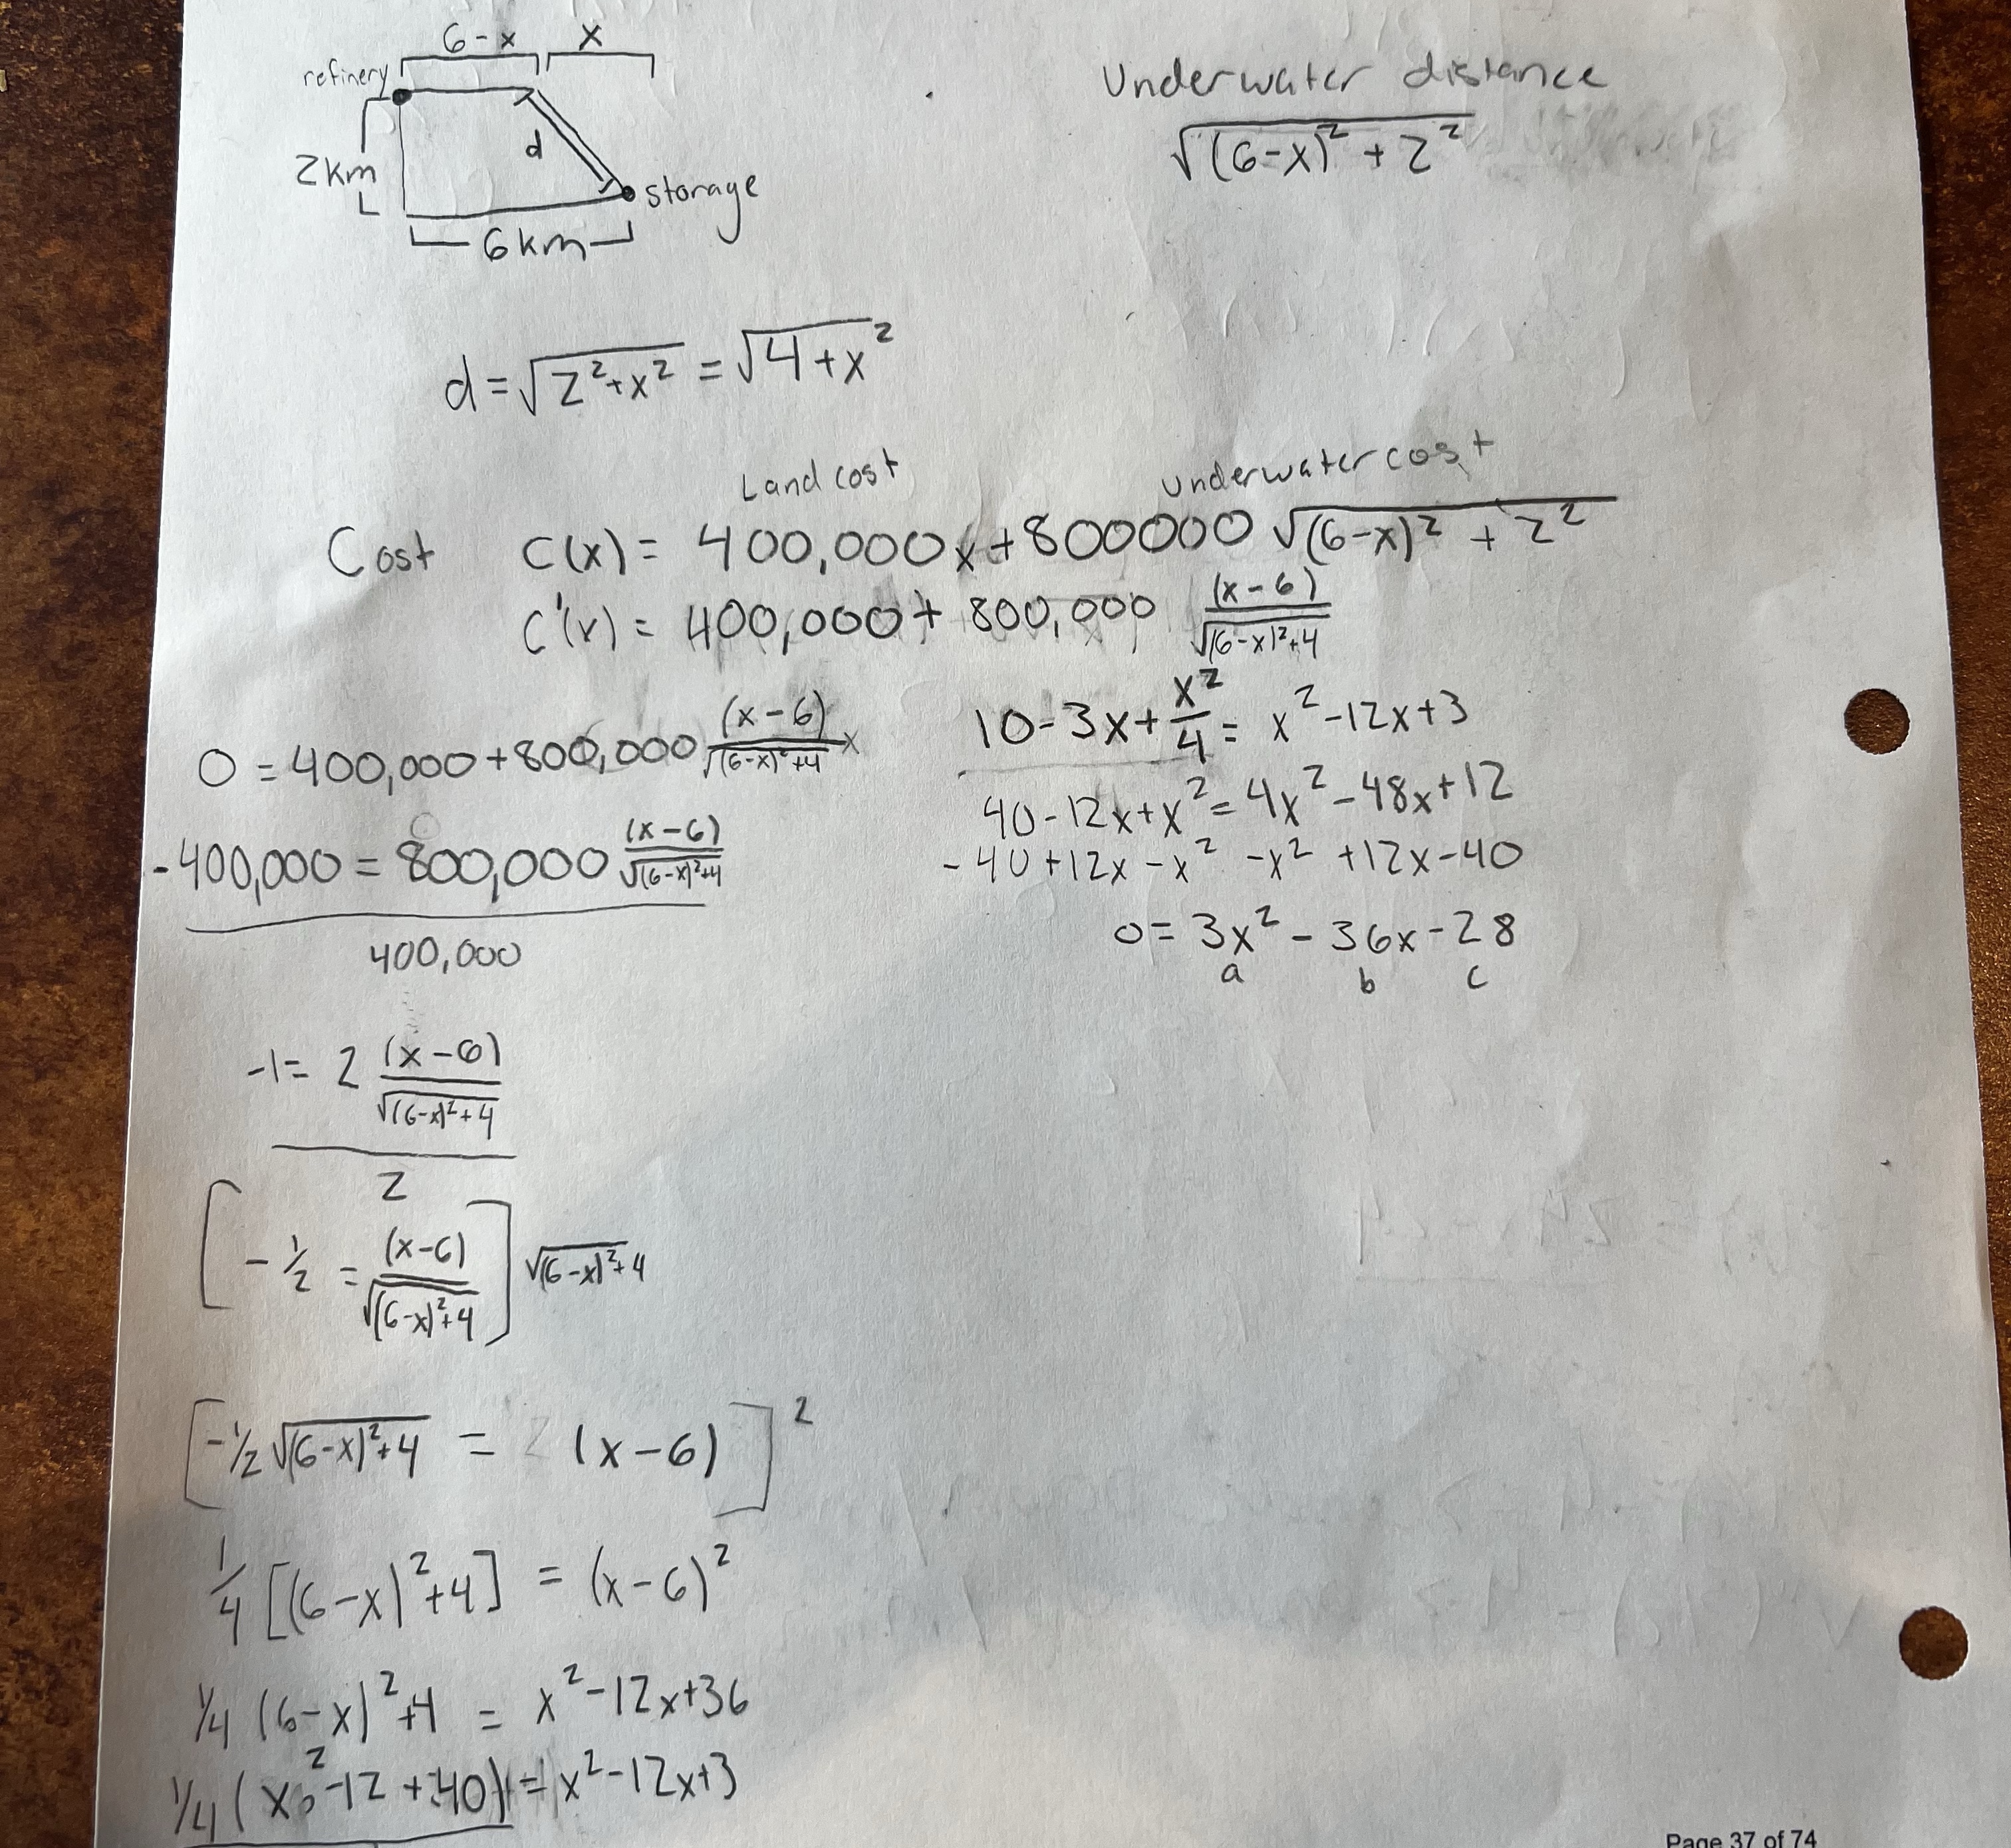 6-x x
refinery
2km
d
storage
6km
Underwater distance
√((6-x)² + 2²)
d = √(2²+x²) = √(4+x)²
Land cost Underwater cost
Cost C(x) = 400,000x + 800000 √((6-x)² + 2²)
C'(x) = 400,000 + 800,000 (x-6)/√((6-x)²+4)
0 = 400,000 + 800,000 (x-6)/√((6-x)²+4) x
-400,000 = 800,000 (x-6)/√((6-x)²+4)
400,000
-1 = 2 (x-6)/√((6-x)²+4)
2
[-1/2 = (x-6)/√((6-x)²+4)] √((6-x)²+4)
[-1/2 √((6-x)²+4) = (x-6)]²
1/4 [(6-x)²+4] = (x-6)²
1/4 (6-x)²+4 = x²-12x+36
1/4 (x²-12+40) = x²-12x+3
10-3x+x²/4 = x²-12x+3
40-12x+x² = 4x²-48x+12
-40+12x-x² -x² +12x-40
0 = 3x² - 36x - 28
a b c
Page 37 of 74